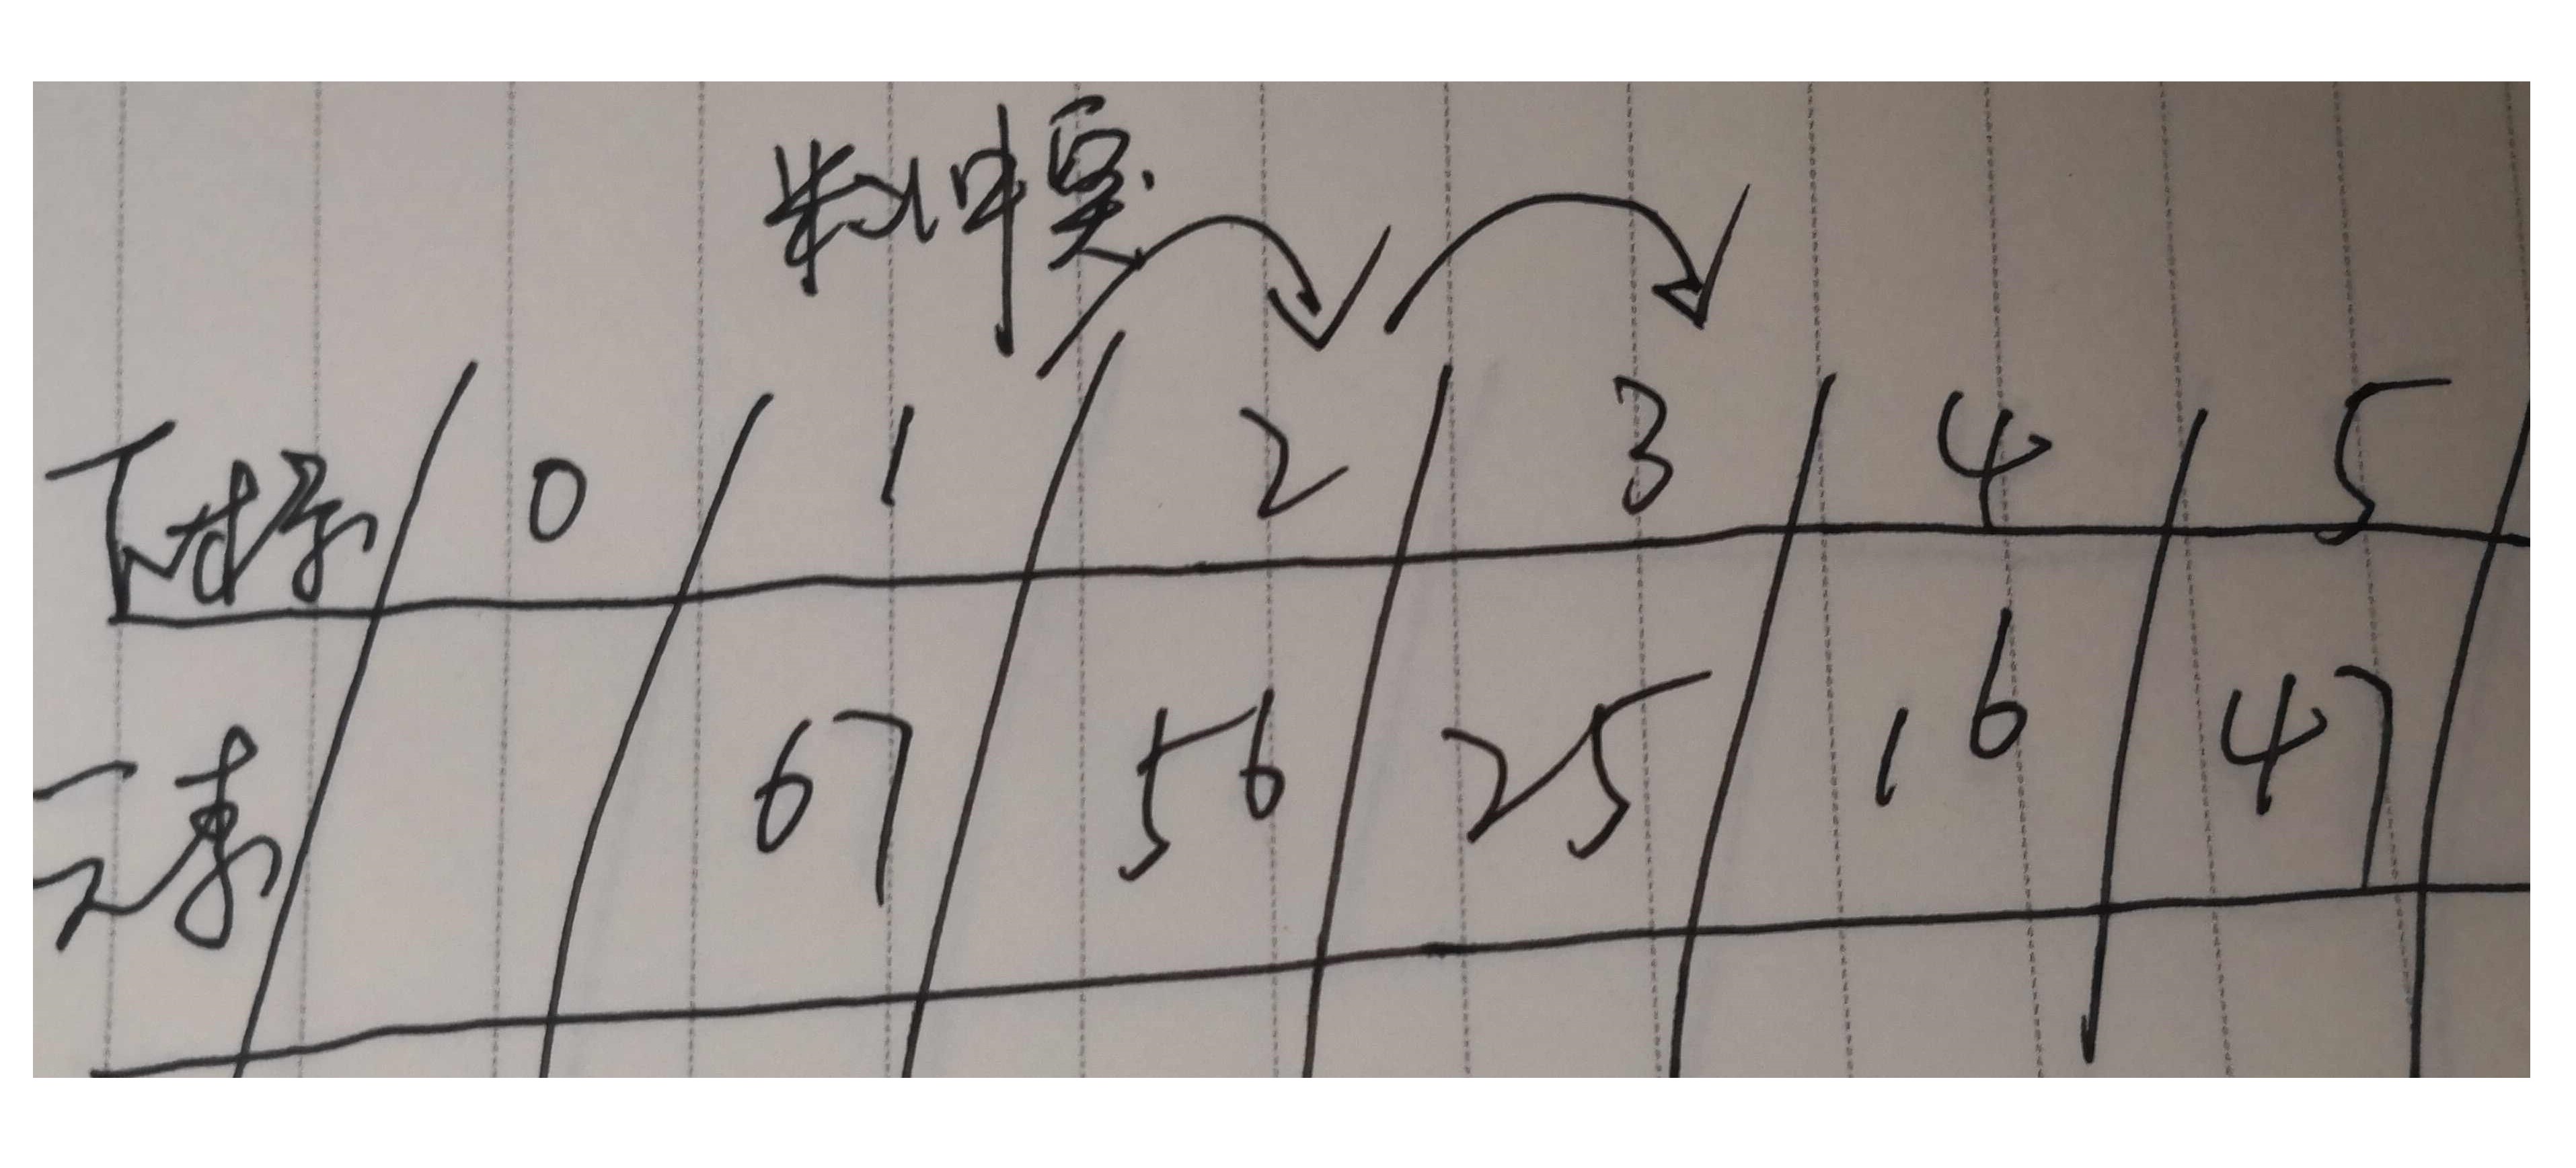 冲突
下标 0 1 2 3 4 5
元素 67 56 25 16 47